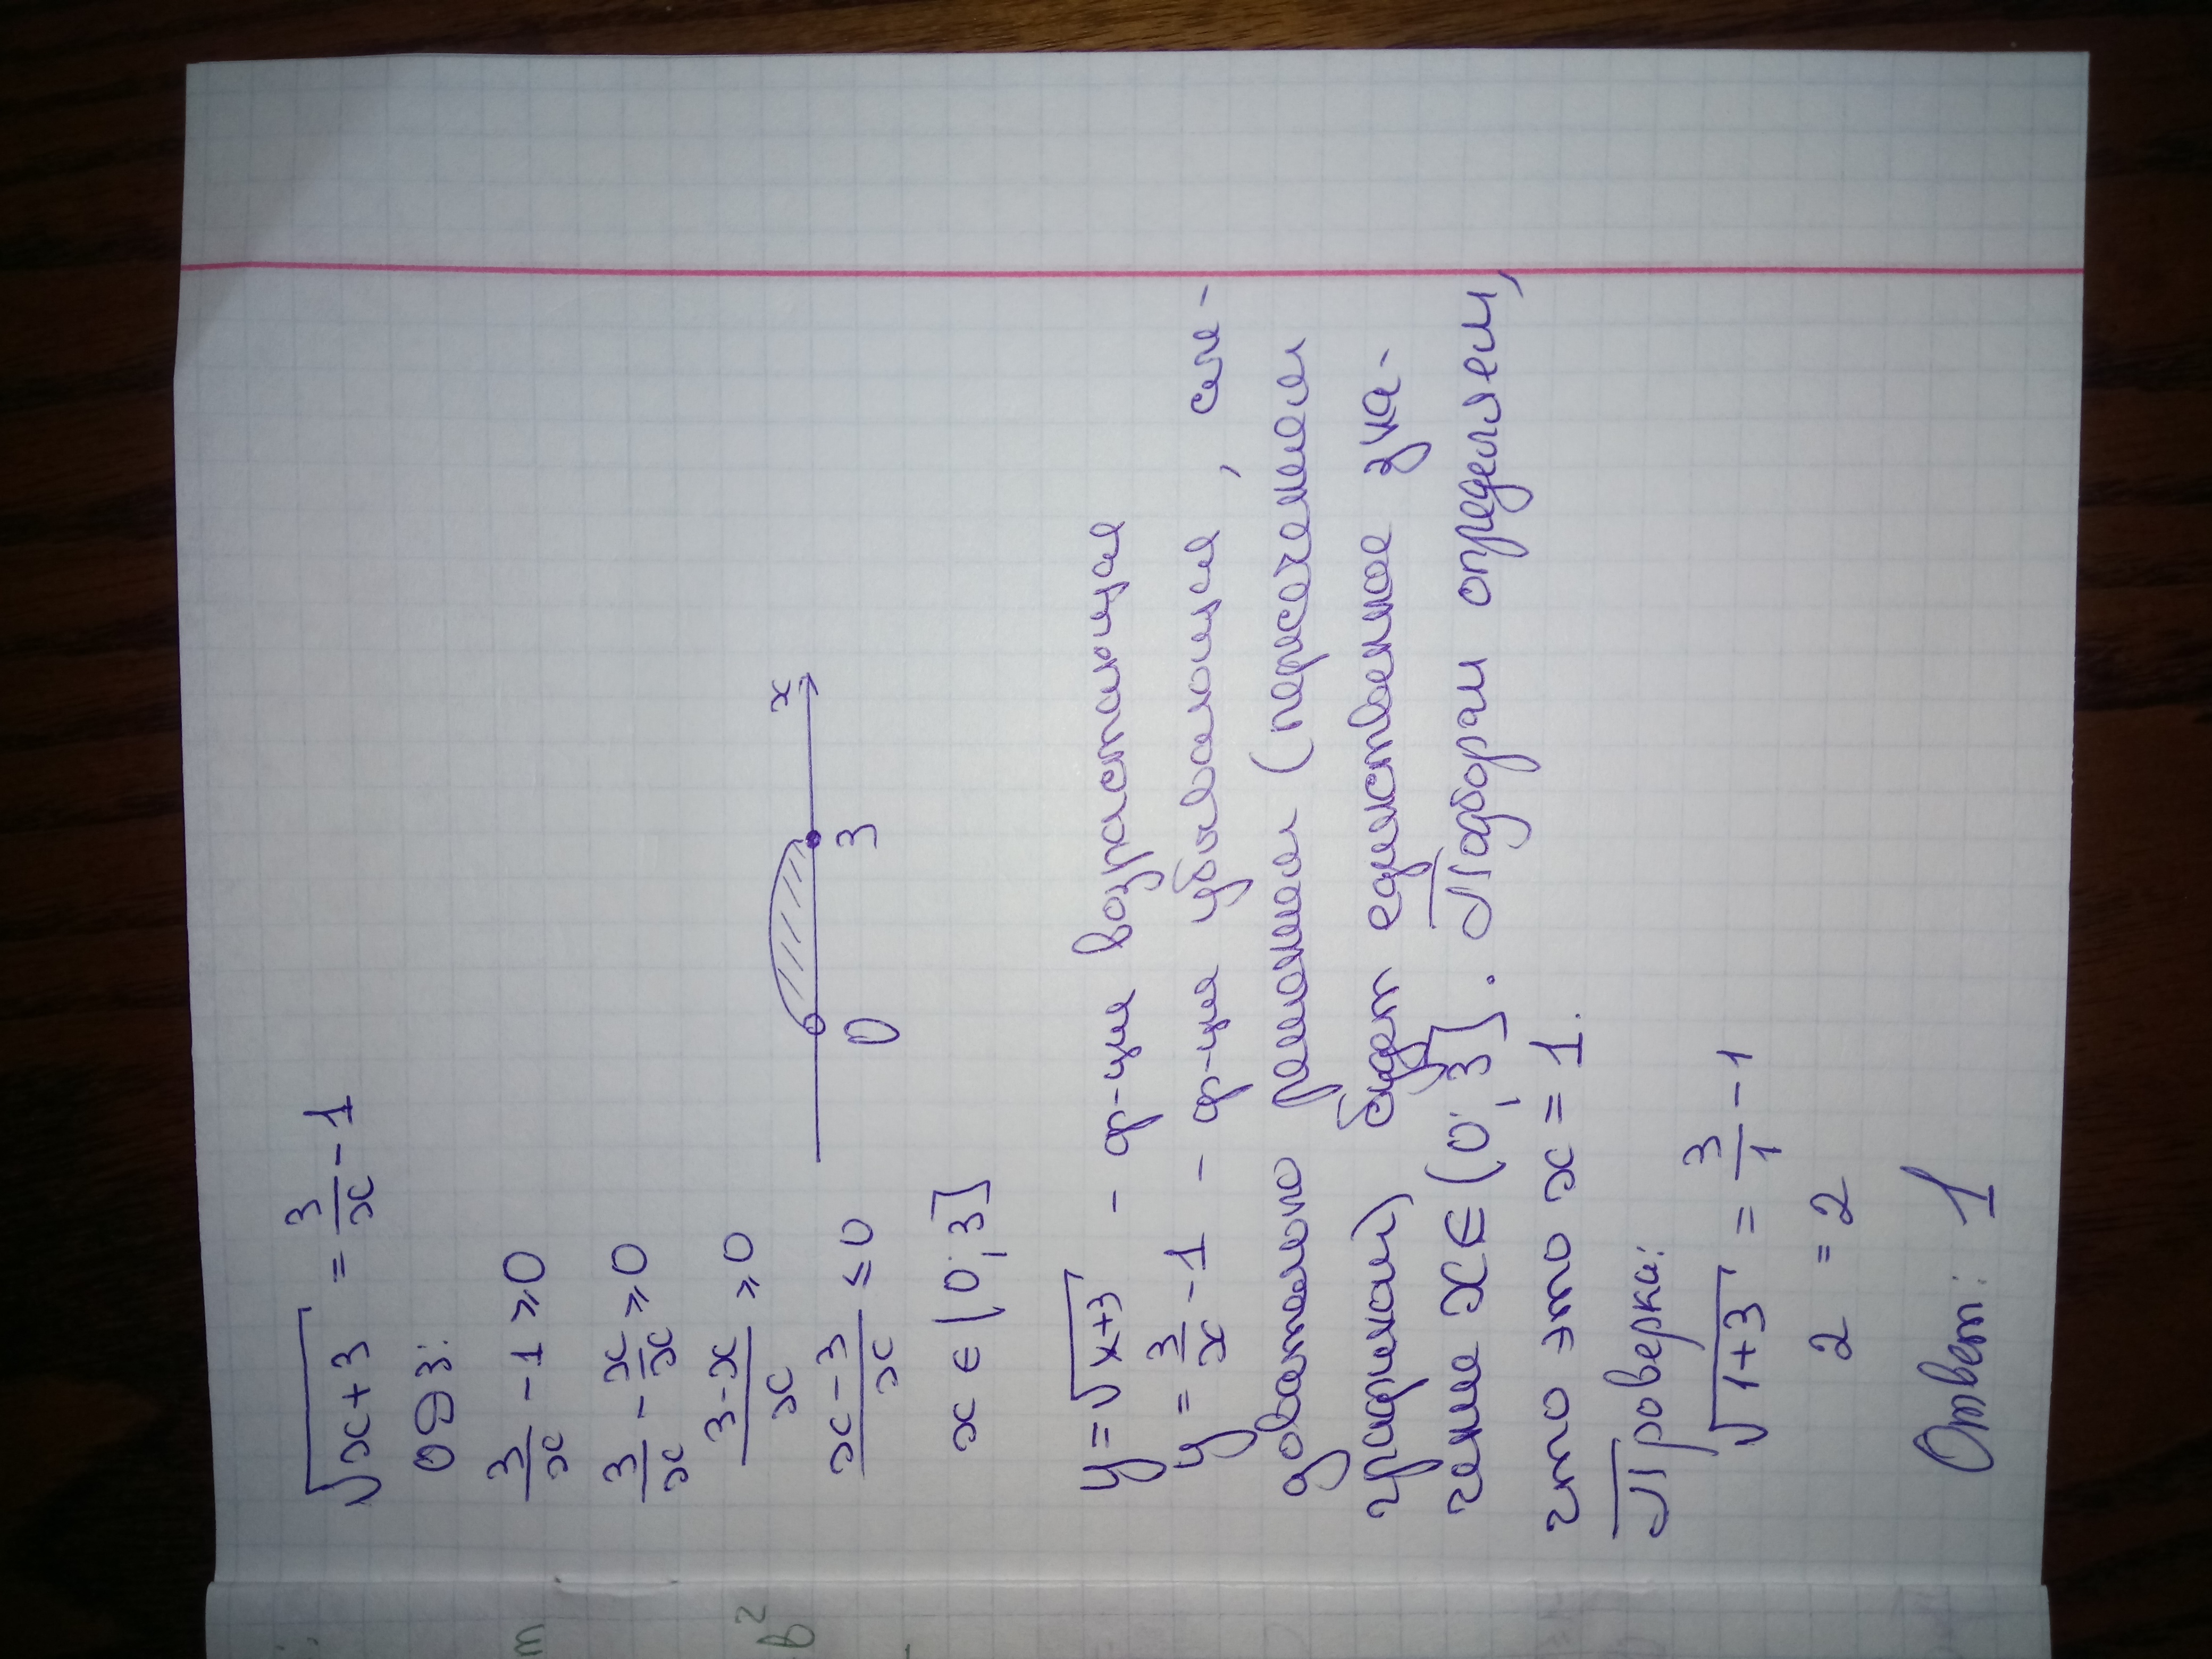 √(x+3) = 3/x - 1
ОДЗ:
3/x - 1 ≥ 0
3/x - x/x ≥ 0
(3-x)/x ≥ 0
(x-3)/x ≤ 0
0 3 x
x ∈ (0; 3]
y = √(x+3) - ф-ция возрастающая
y = 3/x - 1 - ф-ция убывающая, сле-
довательно решением (пересечением
графиков) будет единственное зна-
чение x ∈ (0; 3]. Подбором определяем,
что это x = 1.
Проверка:
√(1+3) = 3/1 - 1
2 = 2
Ответ: 1
m
b²